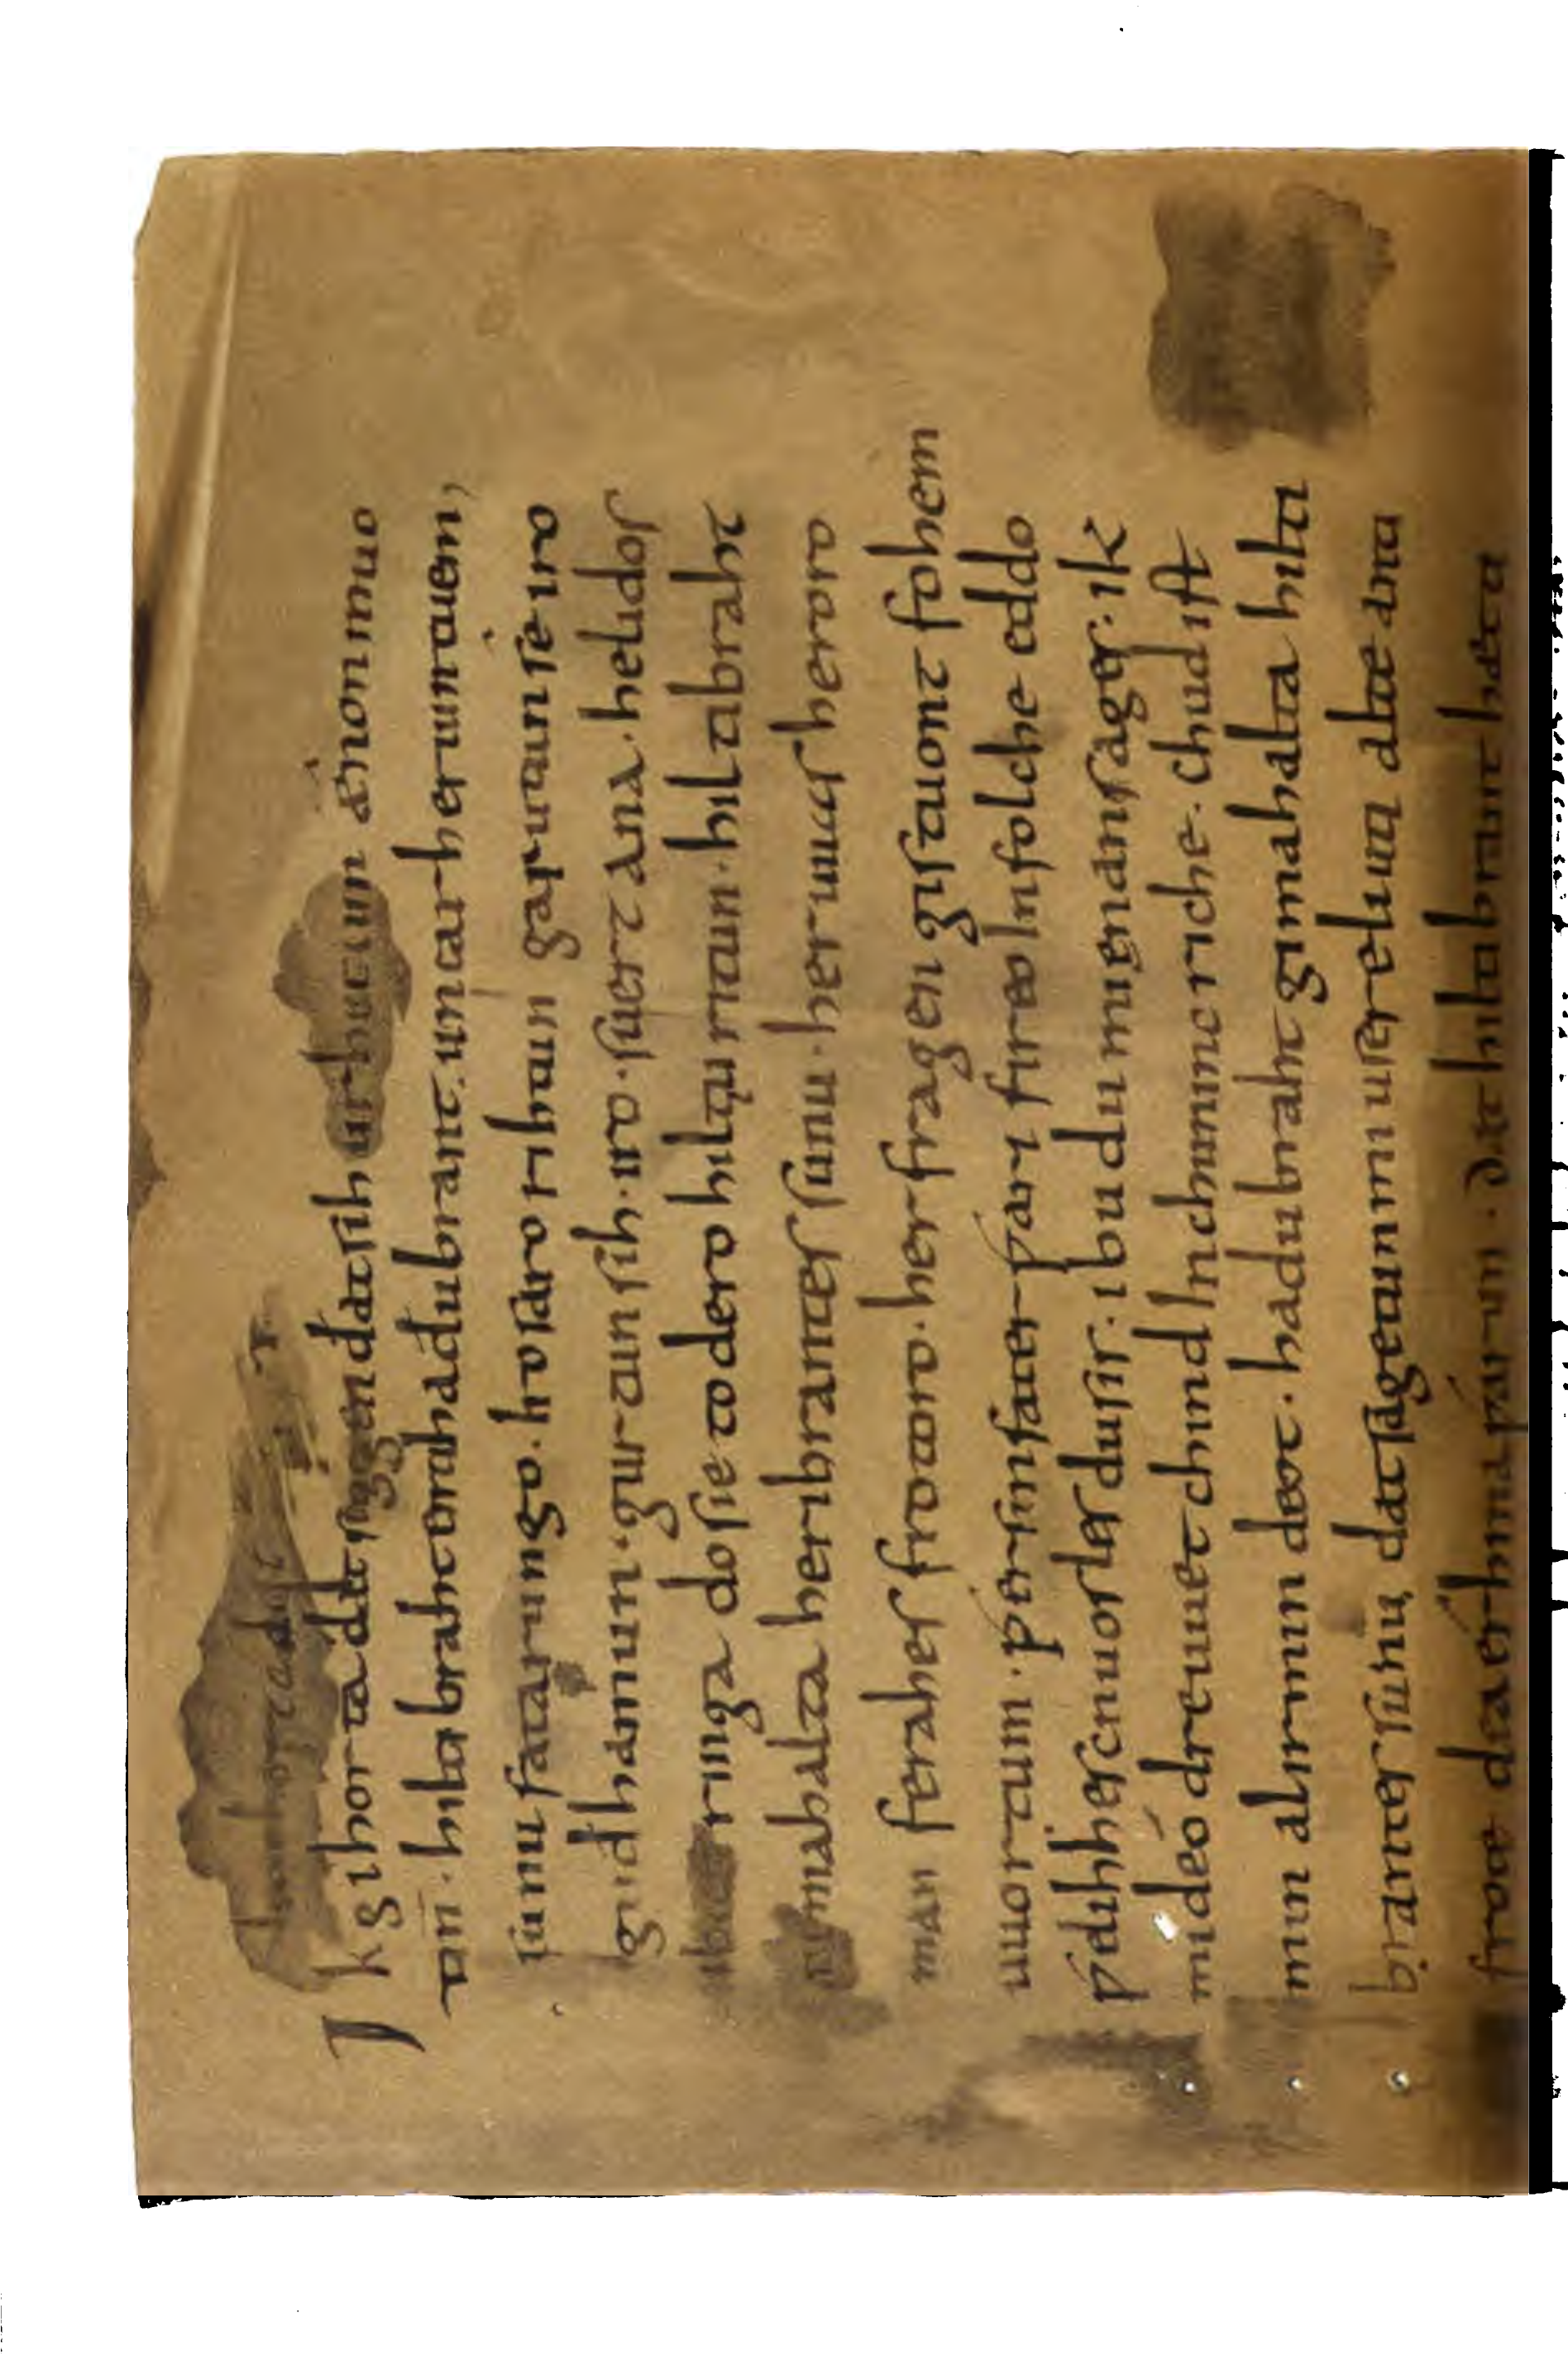 Ik gihorta ðat seggen ðat sih urhettun ænon muo
tin. hiltibraht enti haðubrant. untar heriun tuem,
sunu fatarungo. iro saro rihtun garutun se iro
guðhamun. gurtun sih. iro. suert ana. helidos
ubar ringa do sie to dero hiltiu ritun. hiltibraht
gimahalta heribrantes sunu. her uuas heroro
man ferahes frotoro. her fragen gistuont fohem
uuortum. ƿer sin fater ƿari fireo In folche eddo
ƿelihhes cnuosles du sis. ibu du mi enan sages. ik
mideo dre uuet chind In chunincriche. chud ist
min al irmin deot. hadubraht gimahalta hilti
brantes sunu dat sagetun mi usere liuti alte anti
frote dea erhina ƿarun. dat hiltibrant hætti